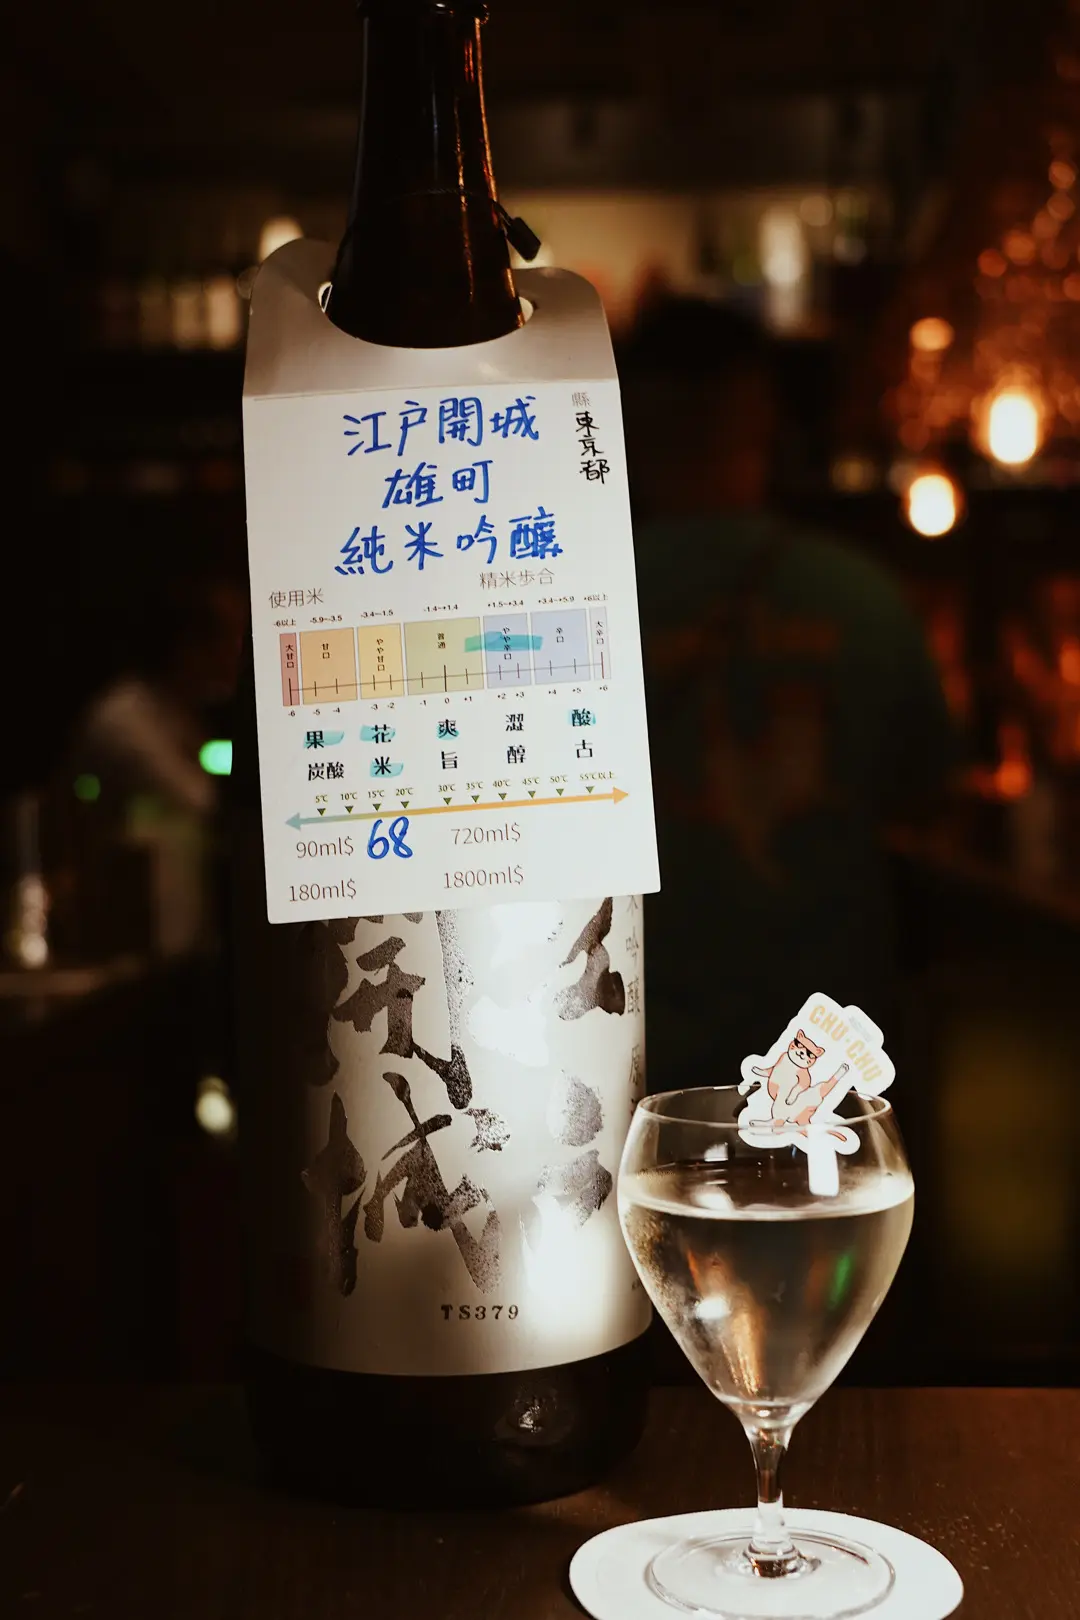 江戸開城
雄町
純米吟醸
縣
東京都
使用米
精米歩合
-6以上 -5.9~-3.5 -3.4~-1.5 -1.4~+1.4 +1.5~+3.4 +3.4~+5.9 +6以上
大甘口 甘口 やや甘口 普通 やや辛口 辛口 大辛口
-6 -5 -4 -3 -2 -1 0 +1 +2 +3 +4 +5 +6
果 花 爽 澀 酸
炭酸 米 旨 醇 古
5℃ 10℃ 15℃ 20℃ 30℃ 35℃ 40℃ 45℃ 50℃ 55℃以上
90ml$ 68 720ml$
180ml$ 1800ml$
米吟醸 原
開城
TS379
CHU·CHU